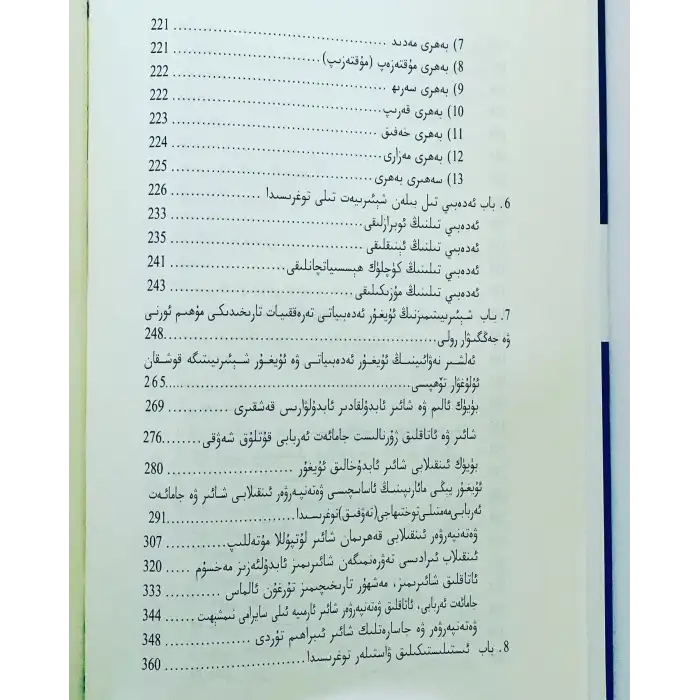 7) بەھرى مەدىد ........................................ 221
8) بەھرى مۇقتەزەپ (مۇقتەزىپ) ........................ 221
9) بەھرى سەرىھ ........................................ 222
10) بەھرى قەرىپ ........................................ 222
11) بەھرى خەفىق ........................................ 223
12) بەھرى مەزارى ........................................ 224
13) سەھىرى بەھرى ........................................ 225
6. باب ئەدەبىي تىل بىلەن شېئىرىيەت تىلى توغرىسىدا .................. 226
ئەدەبىي تىلنىڭ ئوبرازلىقى ........................................ 233
ئەدەبىي تىلنىڭ ئېنىقلىقى ........................................ 235
ئەدەبىي تىلنىڭ كۈچلۈك ھېسسىياتچانلىقى ........................ 241
ئەدەبىي تىلنىڭ مۇزىكىلىقى ........................................ 243
7. باب شېئىرىيىتىمىزنىڭ ئۇيغۇر ئەدەبىياتى تەرەققىيات تارىخىدىكى مۇھىم ئورنى
ۋە جەڭگىۋار رولى ........................................ 248
ئەلشىر نەۋائىينىڭ ئۇيغۇر ئەدەبىياتى ۋە ئۇيغۇر شېئىرىيىتىگە قوشقان
ئۇلۇغۋار تۆھپىسى ........................................ 265
بۈيۈك ئالىم ۋە شائىر ئابدۇلقادىر ئابدۇلۋارىس قەشقىرى ............ 269
شائىر ۋە ئاتاقلىق ژۇرنالىست جامائەت ئەربابى قۇتلۇق شەۋقى ........ 276
بۈيۈك ئىنقىلابى شائىر ئابدۇخالىق ئۇيغۇر ........................ 280
ئۇيغۇر يېڭى مائارىپىنىڭ ئاساسچىسى ۋەتەنپەرۋەر ئىنقىلابى شائىر ۋە جامائەت
ئەربابى مەمتىلى توختىھاجى (تەۋفىق) توغرىسىدا .................. 291
ۋەتەنپەرۋەر ئىنقىلابى قەھرىمان شائىر لۇتپۇللا مۇتەللىپ ............ 307
ئىنقىلاب ئىرادىسى تەۋرەنمىگەن شائىرىمىز ئابدۇلئەزىز مەخسۇم ..... 320
ئاتاقلىق شائىرىمىز، مەشھۇر تارىخچىمىز تۇرغۇن ئالماس ............ 333
جامائەت ئەربابى، ئاتاقلىق ۋەتەنپەرۋەر شائىر ئارمىيە ئىلى سايرامى نىمشېھىت 344
ۋەتەنپەرۋەر ۋە جاسارەتلىك شائىر ئىبراھىم تۇردى .................. 348
8. باب ئىستىلىستىكىلىق ۋاستىلەر توغرىسىدا ........................ 360